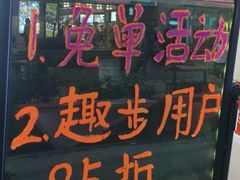 1.免单活动
2.趣步用户
85折